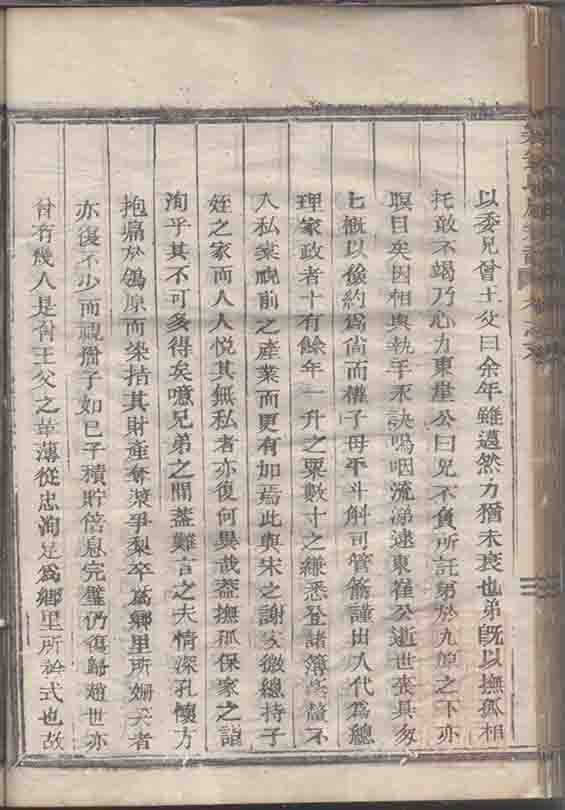 以委兄曾王父曰余年雖邁然力猶未衰也弟既以撫孤相
托敢不竭乃心力東崖公曰兄不負所託弟於九原之下亦
瞑目矣因相與執手永訣嗚咽流涕逮東崔公逝世喪具多
七概以儉約為尚而權子母平斗斛司管籥謹出入代為總
理家政者十有餘年一升之粟數寸之縑悉登諸簿無釐不
入私橐視前之產業而更有加焉此與宋之謝安微總持子
姪之家而人人悅其無私者亦復何異哉蓋撫孤保家之誼
洵乎其不可多得矣噫兄弟之間蓋難言之夫情深孔懷方
抱痛於鴒原而染指其財產奪棗爭梨卒為鄉里所姍笑者
亦復不少而視猶子如己子積貯倍息完璧仍復歸趙世亦
曾有幾人是曾王父之幸薄從忠洵足為鄉里所矜式也故